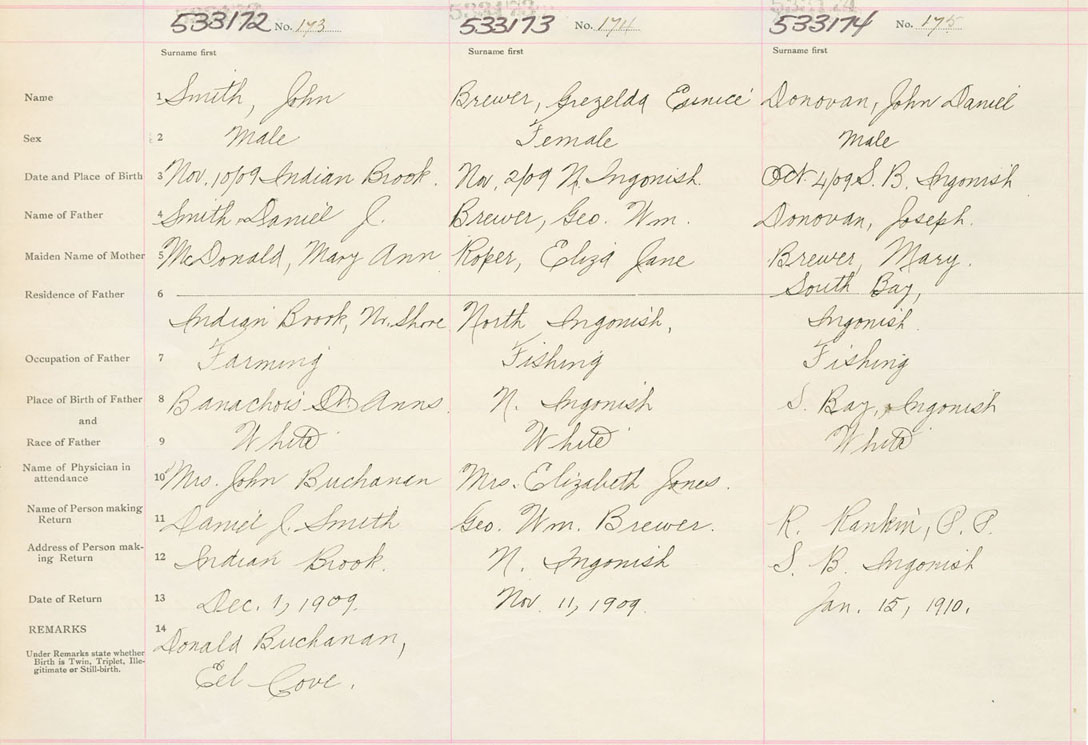 533172 No. 173 533173 No. 174 533174 No. 175
Surname first Surname first Surname first
Name 1 Smith, John Brewer, Grezelda Eunice Donovan, John Daniel
Sex 2 Male Female Male
Date and Place of Birth 3 Nov. 10/09 Indian Brook. Nov. 2/09 N. Ingonish. Oct 4/09 S. B. Ingonish
Name of Father 4 Smith Daniel J. Brewer, Geo. Wm. Donovan, Joseph.
Maiden Name of Mother 5 McDonald, Mary Ann Roper, Eliza Jane Brewer, Mary.
Residence of Father 6 South Bay,
Indian Brook, Nr. Shore North Ingonish, Ingonish.
Occupation of Father 7 Farming Fishing Fishing
Place of Birth of Father 8 St Anns. N. Ingonish S. Bay, Ingonish
and
Race of Father 9 White White White
Name of Physician in
attendance 10 Mrs. John Buchanan Mrs. Elizabeth Jones.
Name of Person making
Return 11 Daniel J. Smith Geo. Wm. Brewer. R. Rankin, P. P.
Address of Person mak-
ing Return 12 Indian Brook. N. Ingonish S. B. Ingonish
Date of Return 13 Dec. 1, 1909. Nov. 11, 1909. Jan. 15, 1910.
REMARKS 14 Donald Buchanan,
Under Remarks state whether
Birth is Twin, Triplet, Ille-
gitimate or Still-birth.
Eel Cove.